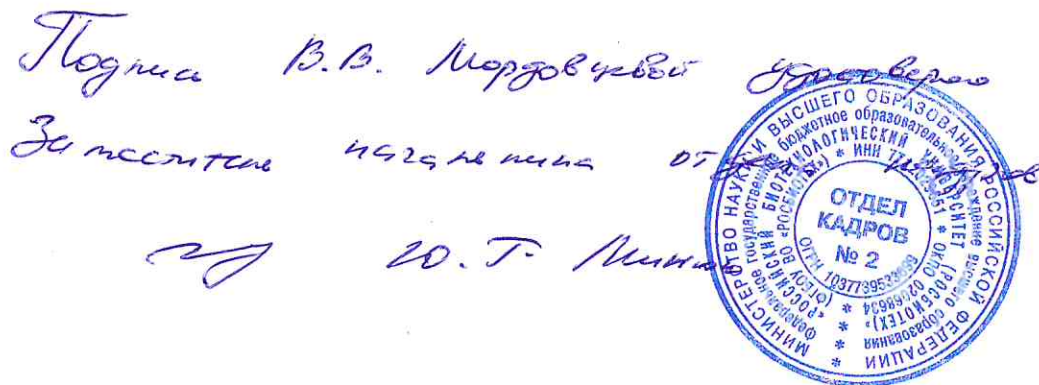 Подпись В.В. Мордовской удостоверяю
Заместитель начальника отдела кадров
Ю.Г.
МИНИСТЕРСТВО НАУКИ И ВЫСШЕГО ОБРАЗОВАНИЯ РОССИЙСКОЙ ФЕДЕРАЦИИ
федеральное государственное бюджетное образовательное учреждение высшего образования
«РОССИЙСКИЙ БИОТЕХНОЛОГИЧЕСКИЙ УНИВЕРСИТЕТ (РОСБИОТЕХ)»
(ФГБОУ ВО «РОСБИОТЕХ») * ИНН * ОКПО 02068634
ОГРН
ОТДЕЛ
КАДРОВ
№ 2